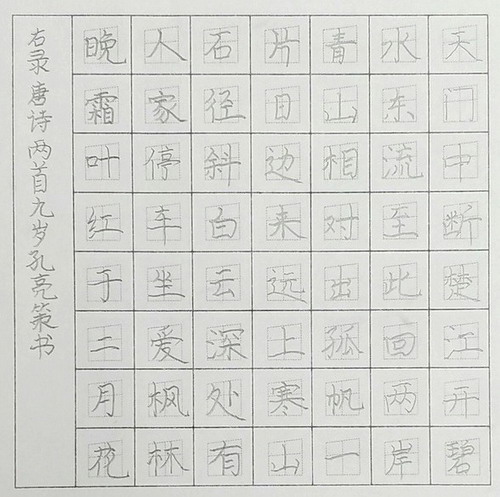 天门中断楚江开碧
水东流至此回两岸
青山相对出孤帆一
片日边来远上寒山
石径斜白云深处有
人家停车坐爱枫林
晚霜叶红于二月花
右录唐诗两首九岁孔亮策书